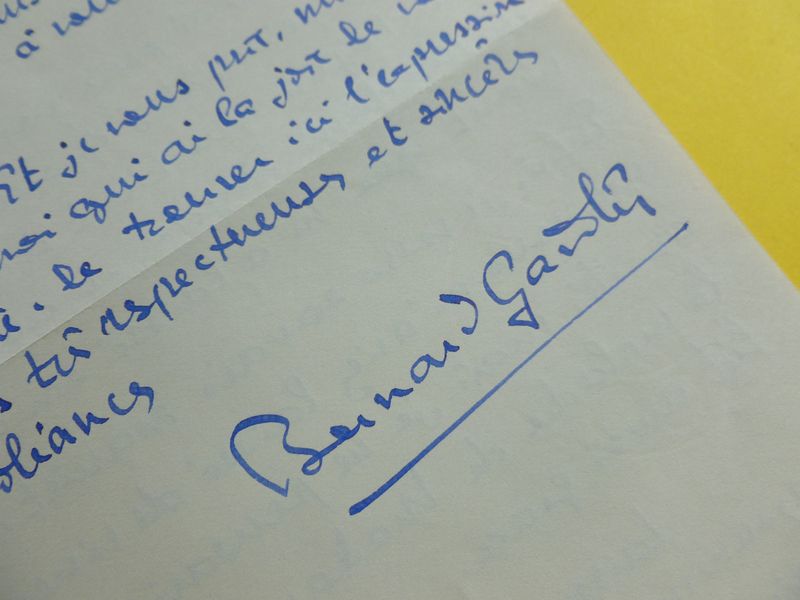 à vous
je vous prie,
moi qui ai la joie de
de trouver ici l'expression
très respectueuses et sincères
Bernard Gavoty